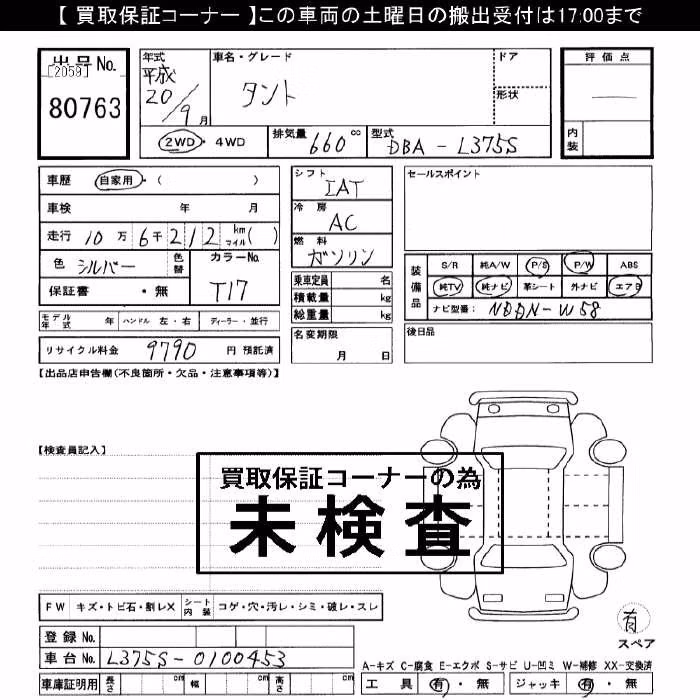 【 買取保証コーナー 】この車両の土曜日の搬出受付は17:00まで
出品No.
[2059]
80763
年式
平成
20/9月
車名・グレード
タント
ドア
形状
評価点
内装
2WD・4WD
排気量 660 cc
型式 DBA - L375S
車歴 自家用・( )
車検 年 月
走行 10万6千212 km マイル( )
色 シルバー 色替
カラーNo. T17
保証書 ・無
モデル年式 年 ハンドル 左・右 ディーラー・並行
リサイクル料金 9790 円 預託済
シフト IAT
冷房 AC
燃料 ガソリン
乗車定員 名
積載量 kg
総重量 kg
名変期限
月 日
セールスポイント
装備品
S/R 純A/W P/S P/W ABS
純TV 純ナビ 革シート 外ナビ エアB
ナビ型番: NDDN-W58
後日品
【出品店申告欄(不良箇所・欠品・注意事項等)】
【検査員記入】
買取保証コーナーの為
未検査
FW キズ・トビ石・割レX シート内装 コゲ・穴・汚レ・シミ・破レ・スレ
登録No.
車台No. L375S-0100453
車庫証明用 長さ cm 幅 cm 高さ cm
有
スペア
A-キズ C-腐食 E-エクボ S-サビ U-凹ミ W-補修 XX-交換済
工具 有・無 ジャッキ 有・無